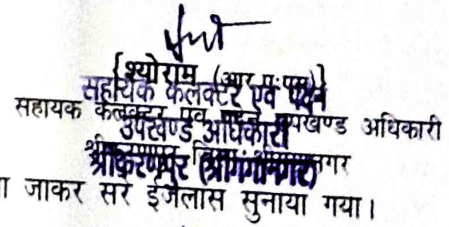 {श्योराम (आर.ए.एस)}
सहायक कलक्टर एवं पदेन
सहायक कलक्टर एवं पदेन उपखण्ड अधिकारी
उपखण्ड अधिकारी
श्रीकरणपुर जिला श्रीगंगानगर
श्रीकरणपुर (श्रीगंगानगर)
ा जाकर सरे इजलास सुनाया गया।